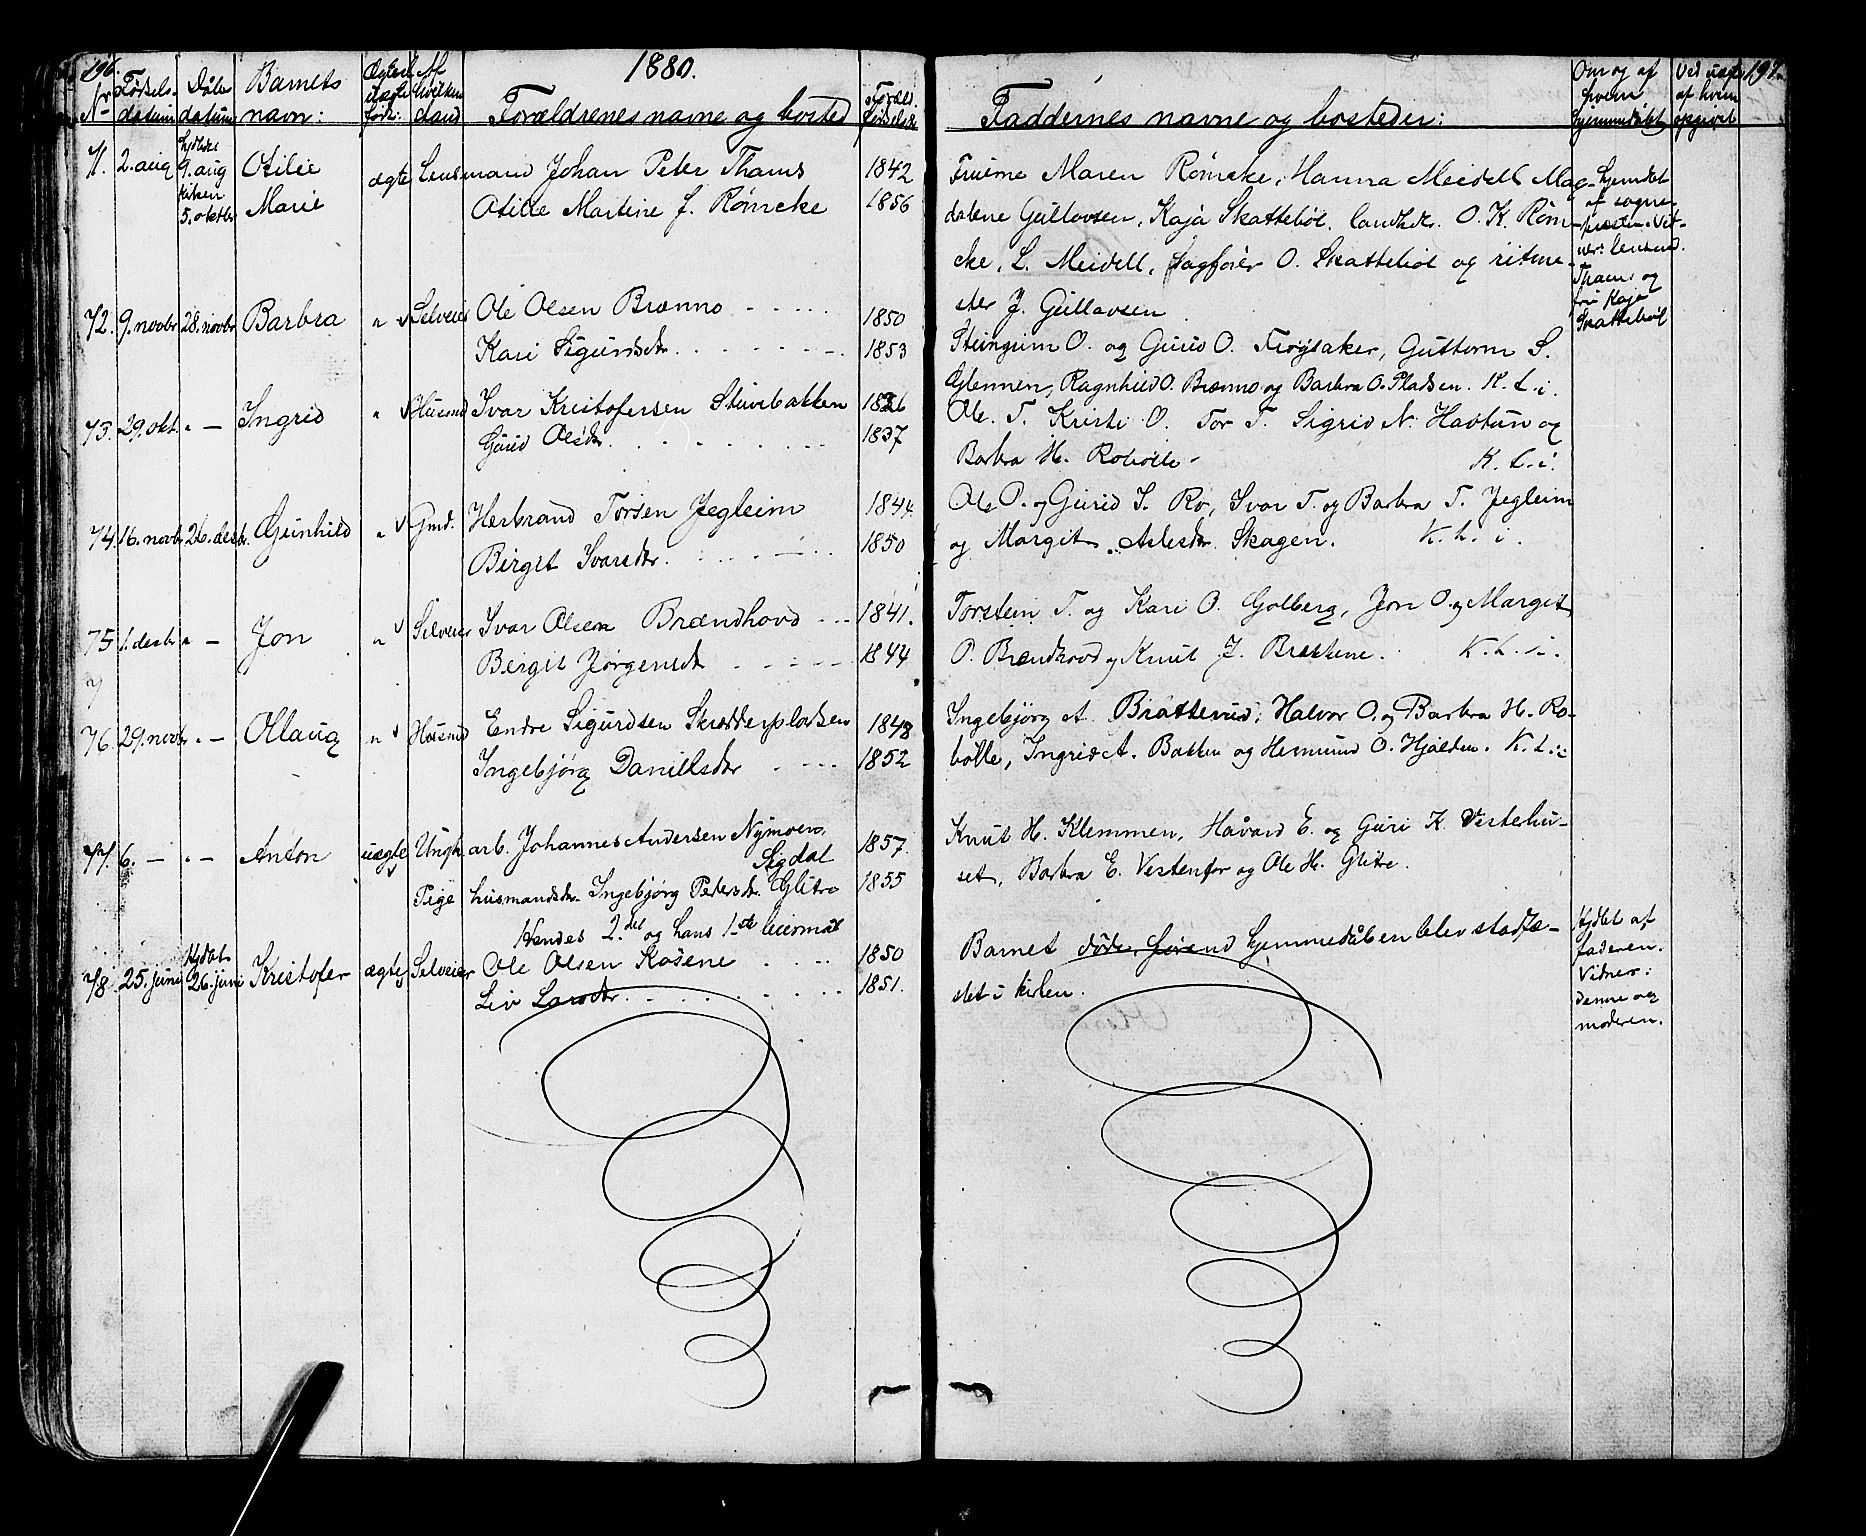 196.
1880.
197.
Nr Fødsels-datum Dåbs datum Barnets navn: Ægte el. uægte født: Af hvilken stand Forældrenes navne og bosted Foræld. fødselsår Faddernes navne og bosteder: Om og af hvem hjemmedøbt Ved uægte af hvem opgivet
71. 2. aug 9. aug kirken 5. oktbr Otilie Marie ægte Lensmand Johan Peter Thams 1842
Otilie Martine f. Rømcke 1856
Fruerne Maren Rømcke, Hanna Meidell Mag-
dalene Gullovsen, Kaja Skattebøl, landhdr. O. K. Røm-
cke, L. Meidell, sagfører O. Skattebøl og ritme-
ster J. Gullovsen
hjemdøbt
af sogne-
præsten. Vid-
ner: lensmd.
Thams og
fru Kaja
Skattebøl
72. 9. novbr 28. novbr Barbra " Selveier Ole Olsen Brænno 1850
Kari Sigurdsdtr. 1853
Steingrim O. og Guri O. Trøgaker, Guttorm S.
Glennen, Ragnhild O. Brænno og Barbra O. Pladsen. K. L. i.
73. 29. okt. " — Ingrid " Husmd Ivar Kristofersen Stuvebakken 1826
Guri Olsdtr. 1837
Ole T. Kristi O. Tor T. Sigrid N. Havtun og
Barbra H. Robølle - K. L. i.
74. 16. novbr 26. desbr. Gunhild " Gmd. Herbrand Torsen Jegleim 1844.
Birgit Ivarsdtr. 1850
Ole P. og Gurid S. Ro, Ivar T. og Barbra T. Jegleim
og Margit Aslesdtr. Skagen. K. L. i.
75 1. desbr " — Jon " Selveier Ivar Olsen Brændhovd 1841.
Birgit Jørgensdtr 1844
Torstein T. og Kari O. Golberg, Jon O. og Margit
P. Brændhovd og Knut J. Brattene. K. L. i.
76. 29. novbr " — Ollaug " Husmd Endre Sigurdsen Skrædderpladsen 1848
Ingebjørg Danielsdtr 1852
Ingebjørg A. Bratterud, Halvor O. og Barbra H. Ro-
bølle, Ingrid A. Bakken og Hermund O. Hjalden. K. L. i
77. 6. — " — Anton uægte Ungk. arb. Johannes Andersen Nymoen, 1857.
Sigdal
Pige husmandsdtr. Ingebjørg Petersdtr. Glitre 1855
Hendes 2.det og hans 1ste leiermål
Knut H. Klemmen, Håvard E. og Guri K. Vesterhu-
set, Barbra E. Vestenfor og Ole H. Glitre.
78. 25. juni Hjdøbt 26. juni Kristofer ægte Selveier Ole Olsen Råsene 1850
Liv Larsdtr. 1851.
Barnet døde, førend hjemmedåben blev stadfæ-
stet i kirken.
Hjdøbt af
faderen.
Vidner:
denne og
moderen.